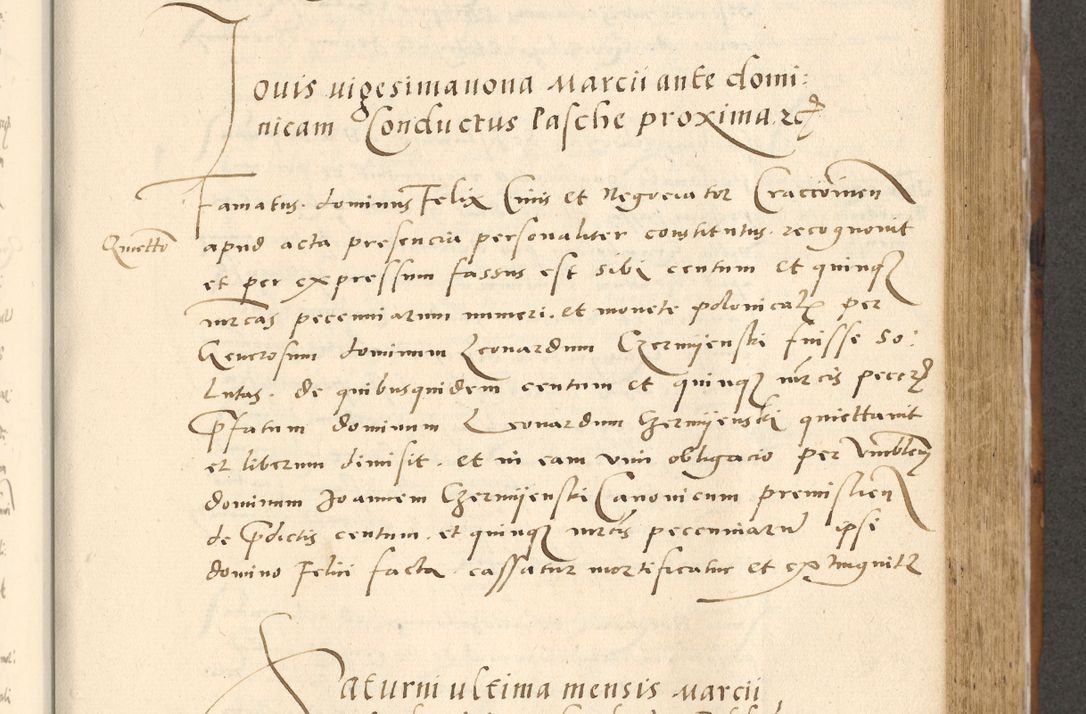 Jovis vigesimanona Marcii ante domi:
nicam Conductus Pasche proxima, etc.
Quietto
Famatus dominus Felix Civis et Negociator Craccovien
apud acta presencia personaliter constitutus. recognovit
et per expressum fassus est sibi centum et quinq3
mrcas pecuniarum numeri. et monete polonicalis per
Generosum dominum Leonardum Czermijenski fuisse so:
lutas. de quibusquidem centum et quinq3 mrcis pecer
Pfatum dominum Leonardum Czermijenski quiettavit
et liberum dimisit. et in eam vim obligacio per Vnrablem
dominum Joannem Czermijenski Canonicum premislien
de Pdictis centum. et quinq3 mrcis pecuniaru ipsi
domino Felici facta cassatur mortificatur et extinguitr
Saturni ultima mensis Marcii,